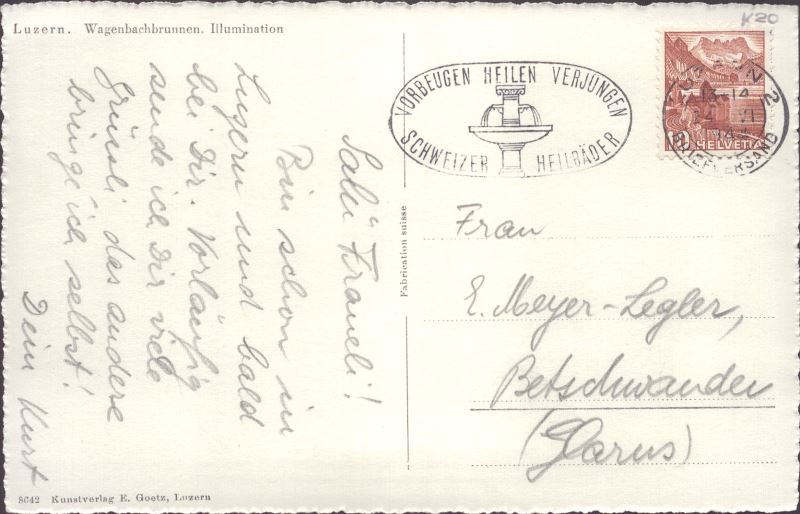 Luzern. Wagenbachbrunnen. Illumination
K20
VORBEUGEN HEILEN VERJÜNGEN
SCHWEIZER HEILBÄDER
LUZERN 2
BRIEFVERSAND
HELVETIA
Salü Fraueli!
Bin schon in
Luzern und bald
bei Dir. Vorläufig
sende ich Dir viele
Grüssli, das andere
bringe ich selbst!
Dein Kurt
Frau
E. Meyer-Legler,
Betschwanden
(Glarus)
Fabrication suisse
8642 Kunstverlag E. Goetz, Luzern